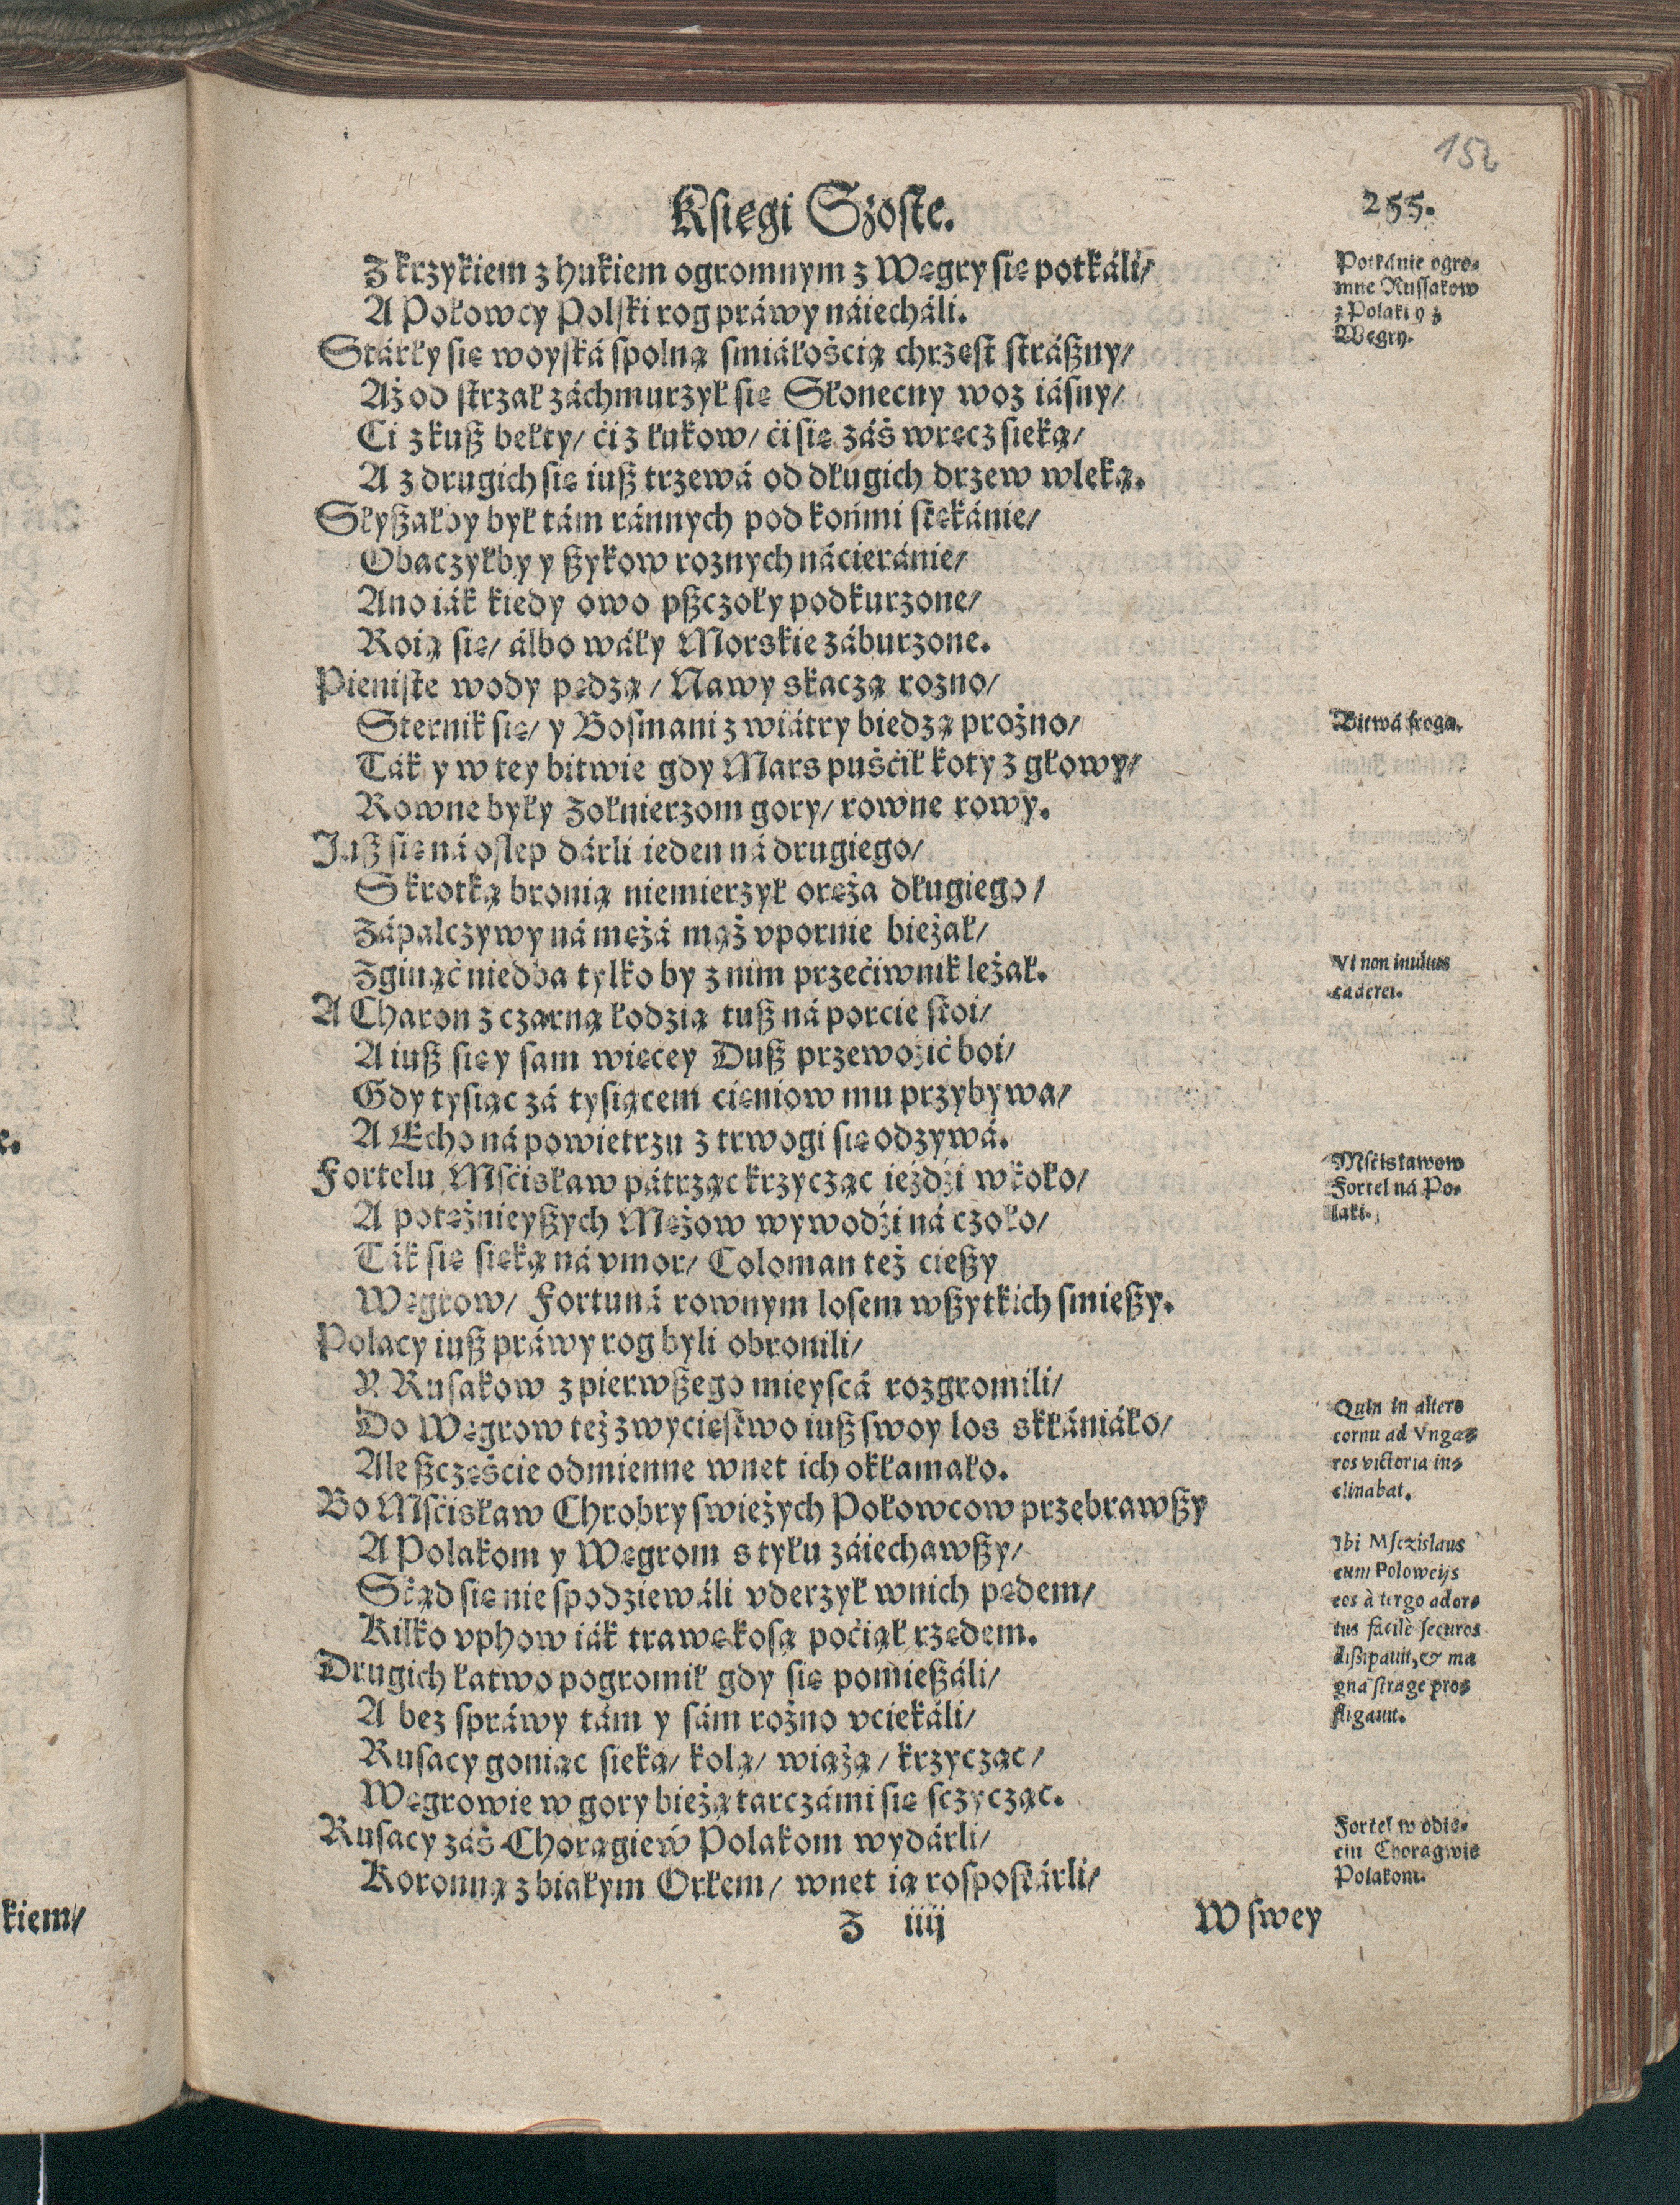 152
Księgi Szoste.
255.
Z krzykiem z hukiem ogromnym z Węgry się potkáli/
A Połowcy Polski rog práwy náiecháli.
Stárły się woyská spolną smiáłością chrzęst strászny/
Aż od strzał záchmurzył się Słonecny woz iásny/
Ci z kusz bełty/ ći z łukow/ ći się záś wręcz sieką/
A z drugich się iusz trzewá od długich drzew wleką.
Słyszałby był tám ránnych pod końmi stękánie/
Obaczyłby y szykow roznych náćieránie/
Ano iák kiedy owo pszczoły podkurzone/
Roią się/ álbo wáły Morskie záburzone.
Pieniste wody pędzą/ Nawy skaczą rozno/
Sternik się/ y Bosmani z wiátry biedzą prożno/
Ták y w tey bitwie gdy Mars puśćił koty z głowy/
Rowne były Zołnierzom gory/ rowne rowy.
Jusz się ná oslep dárli ieden ná drugiego/
S krotką bronią niemierzył oręża długiego/
Zápalczywy ná mężá mąż vpornie bieżał/
Zginąć niedba tylko by z nim przećiwnik leżał.
A Charon z czarną łodzią tusz ná porcie stoi/
A iusz się y sam więcey Dusz przewoźić boi/
Gdy tysiąc zá tysiącem cieniow mu przybywa/
A Echo ná powietrzu z trwogi się odzywá.
Fortelu Msćisław pátrząc krzycząc ieźdźi wkoło/
A potężnieyszych Mężow wywodźi ná czoło/
Ták się sieką ná vmor/ Coloman też cieszy
Węgrow/ Fortuná rownym losem wszytkich smieszy.
Polacy iusz práwy rog byli obronili/
Y Rusakow z pierwszego mieyscá rozgromili/
Do Węgrow też zwycięstwo iusz swoy los skłániáło/
Ale szczęście odmienne wnet ich okłamało.
Bo Msćisław Chrobry swieżych Połowcow przebrawszy
A Polakom y Węgrom s tyłu záiechawszy/
Skąd się nie spodziewáli vderzył wnich pędem/
Kilko vphow iák trawę kosą poćiął rzędem.
Drugich łatwo pogromił gdy się pomieszáli/
A bez spráwy tám y sám rożno vciekáli/
Rusacy goniąc sieką/ kolą/ wiążą/ krzycząc/
Węgrowie w gory bieżą tarczámi się sczycząc.
Rusacy záś Chorągiew Polakom wydárli/
Koronną z białym Orłem/ wnet ią rospostárli/
Z iiij
W swey
Potkánie ogro-
mne Russakow
z Polaki y z
Węgry.
Bitwá sroga.
Vt non inultus
caderet.
Msćisławow
Fortel ná Po-
laki.
Quin in altero
cornu ad Vnga-
ros victoria in-
clinabat.
Ibi Msczislaus
cum Poloweijs
eos à tergo ador-
tus facilè securos
dißipauit, & ma
gna strage pro-
fligauit.
Fortel w odię-
ciu Chorągwie
Polakom.
kiem/